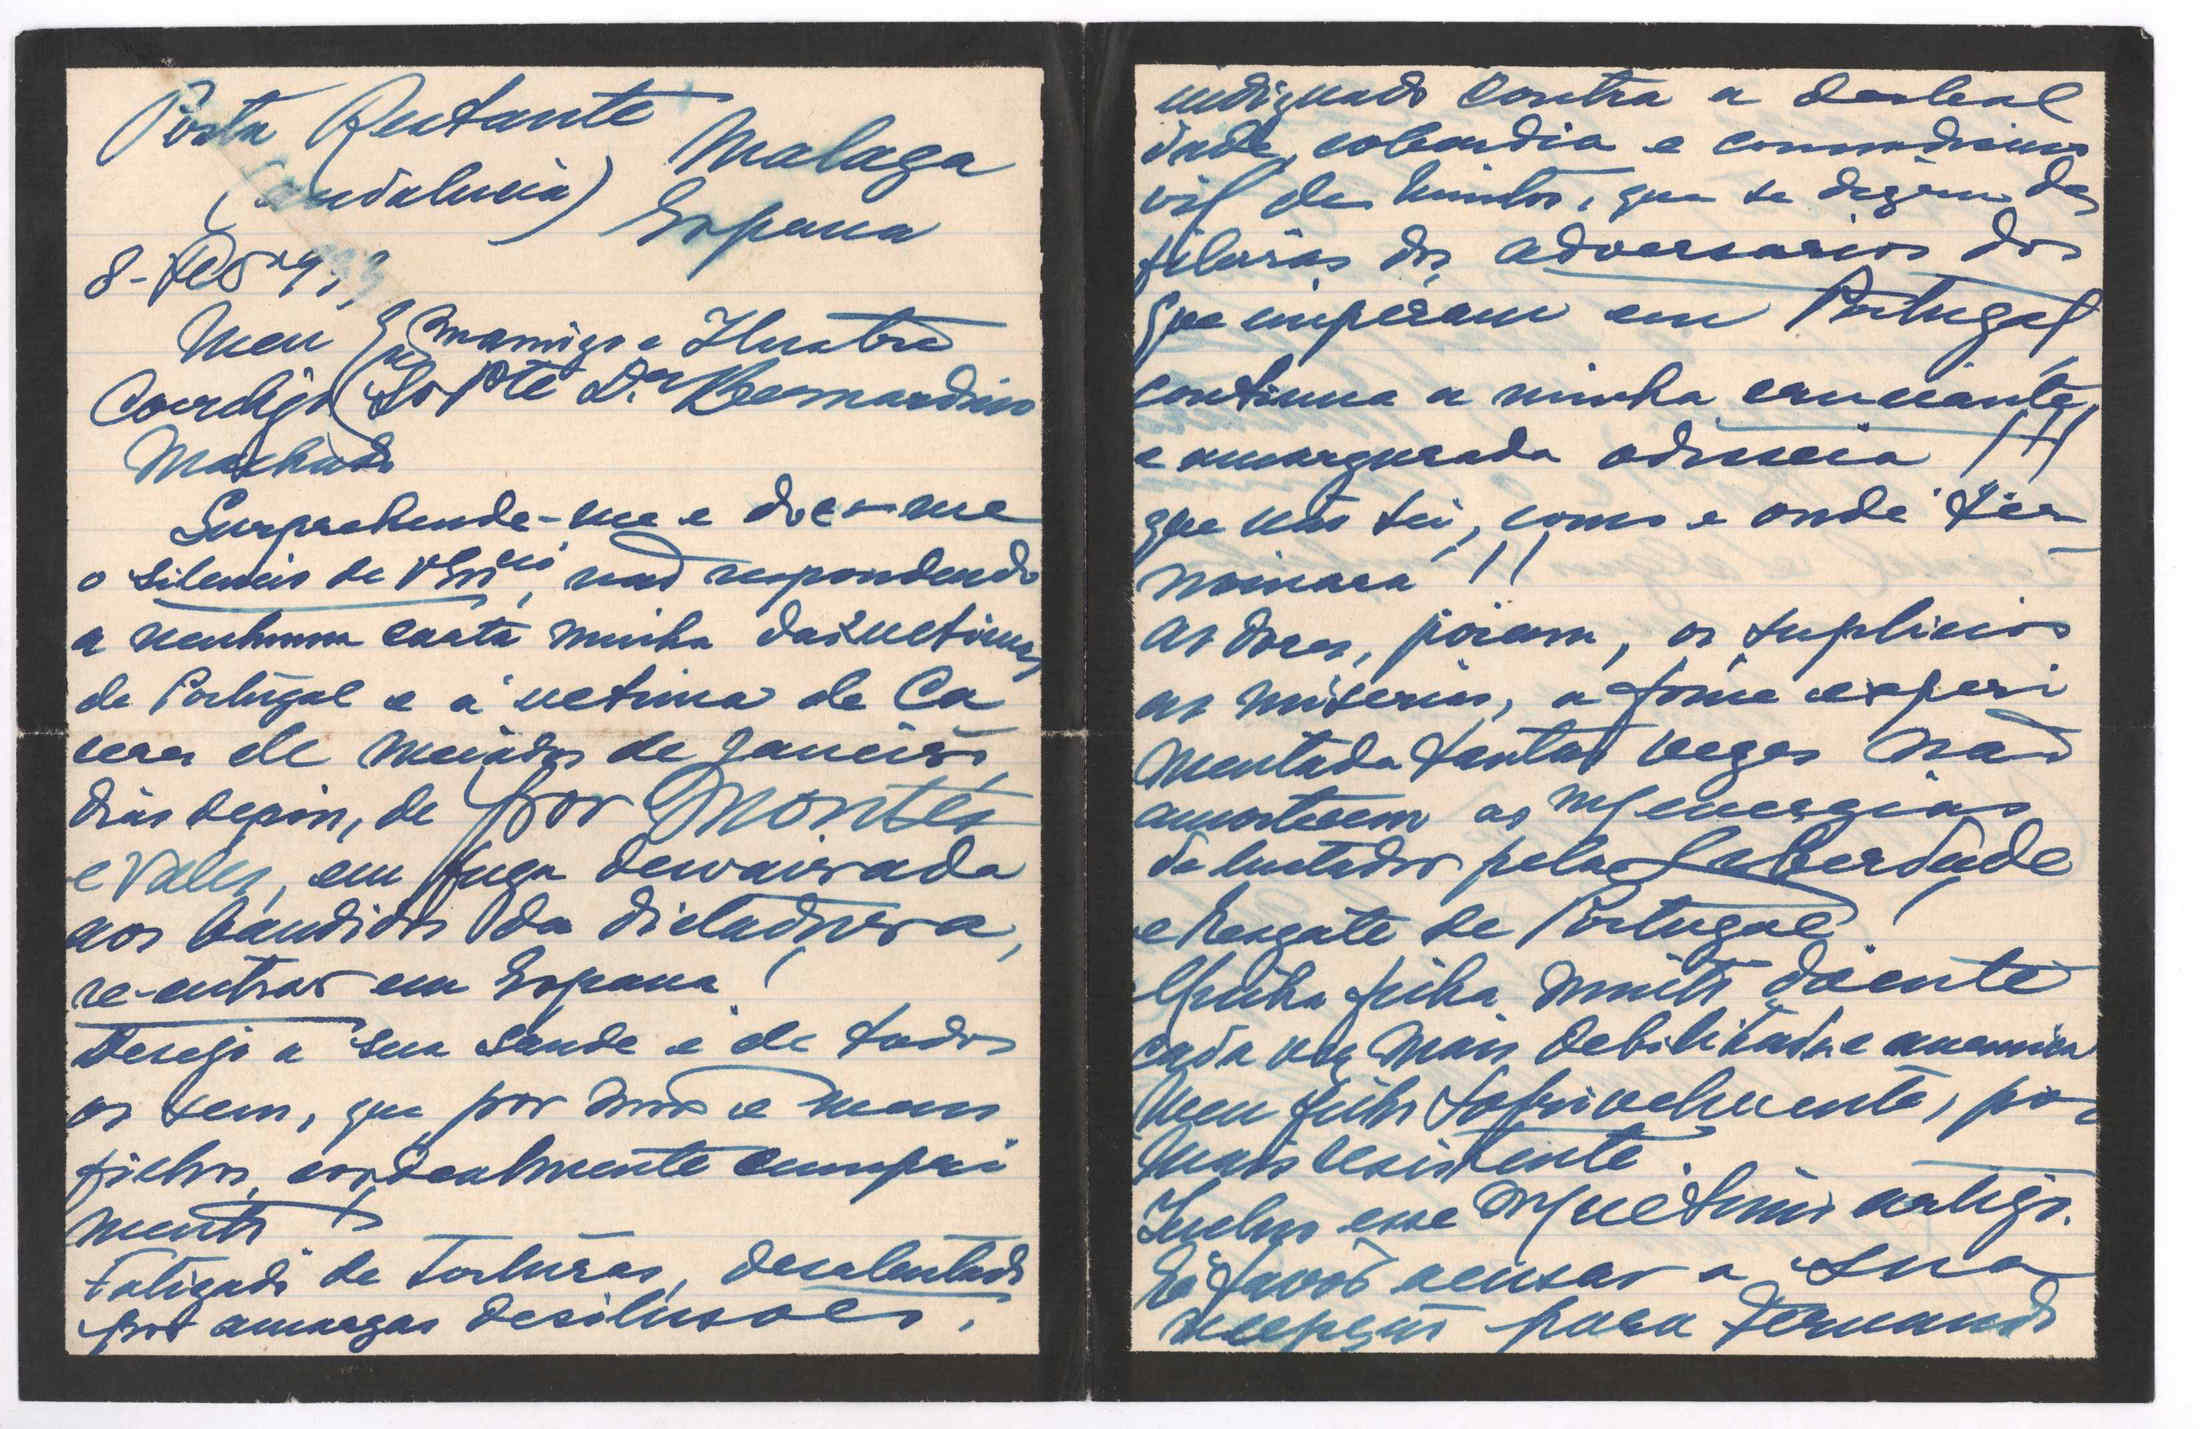 Posta Restante Malaga
(Andalucia) Espana
8-Feb
Meu Exmo amigo e Ilustre
Correligo Dr. Bernardino
Machado
Surprehende-me e doe-me
o silencio de V. Excia, não respondendo
a nenhuma carta minha das ultimas
de Portugal e á ultima de Ca
de meiados de Janeiro
dias depois, de por Montes
e Vales, em fuga desvairada
aos bandidos da dictadura,
re-entrar em Espana!
Desejo a sua saude e de todos
os seus, que por mim e meus
filhos, cordealmente cumpri
mento
Fatigado de torturas, desalentado
por amargas desilusoes,
indignado contra a desleal
dade, cobardia e comodismo
vil de muitos, que se dizem das
fileiras dos adversarios dos
que imperam em Portugal,
continua a minha cruciante
e amargurada odisseia!!!
que não sei, como e onde ter
minara!!
As dores, porem, os suplicios
as miserias, a fome experi
mentada tantas vezes não
amortecem as mas energias
de luctador pela Liberdade
e Resgate de Portugal!
Minha filha muito doente
cada vez mais debilitada e anemica
Meu filho sofrivelmente, por
mais resistente.
Incluo esse meu ultimo artigo.
É favor acusar a sua
recepção para Fernando